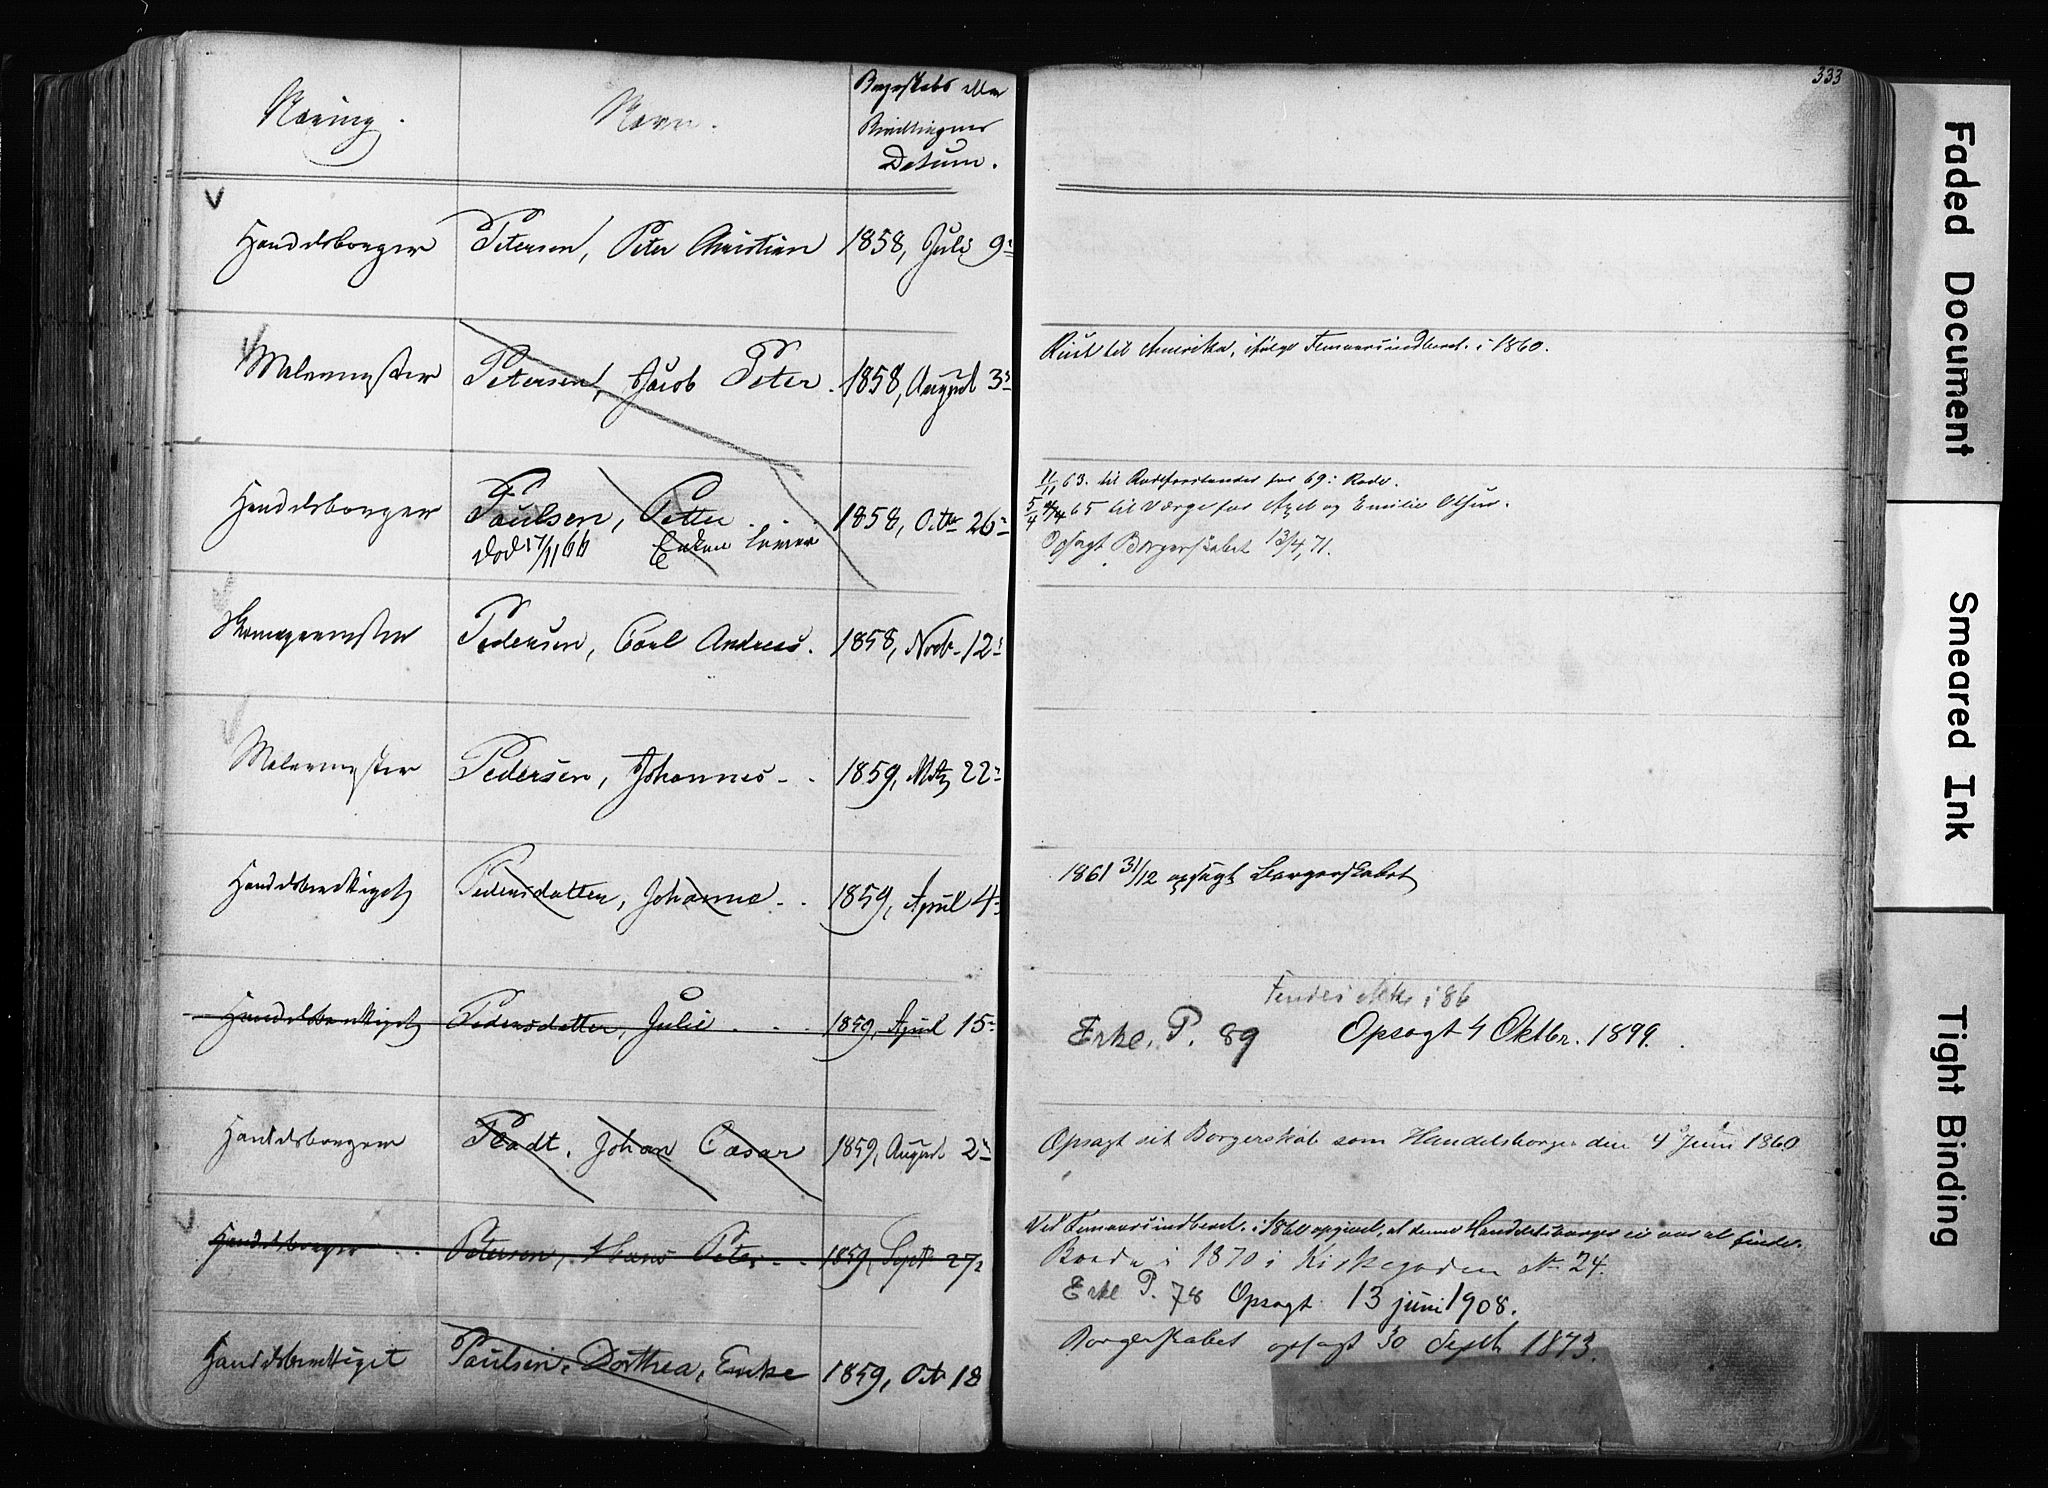 333
Næring. Navn. Borgerskabs eller
Bevillingens
Datum.
Handelsborger Petersen, Peter Christian 1858, Juli 9
Malermester Petersen, Jacob Peter. 1858, August 3
Reist til Amerika, ifølge Femaarsindberet. i 1860.
Handelsborger Paulsen, Petter . . 1858, Octbr 26
død 17/11 66 Enken
11/11 63. til Rodeforstander for 69: Rode.
5/4 65 til Værge for Axel og Emilie
Opsagt Borgerskabet 13/4, 71.
Skomagermester Pedersen, Carl Andreas. 1858, Novb. 12
Malermester Pedersen, Johannes - . 1859, Mtz 22
Handelsberettiget Pedersdatter, Johanne . . 1859, April 4
1861 31/12 opsagt Borgerskabet
Handelsberettiget Pedersdatter, Julie . . . 1859, April 15
Findes ikke i 86
Enke. P. 89 Opsagt 4 Oktbr. 1899.
Handelsborger Pladt, Johan Cæsar 1859, August 2
Opsagt sit Borgerskab som Handelsborger den 4 Juni 1860
Handelsborger . . Petersen, Hans Peter . . 1859, Septb 27
Ved Femaarsindberet. i 1860 opgivet, at denne Handelsborger ei var at finde.
Boede i 1870 i Kirkegaden No 24.
Enke P. 78 Opsagt 13 juni 1908.
Handelsberettiget Paulsen, Dorthea, Enke 1859, Oct 18
Borgerskabet opsagt 30 Septb 1873.
Faded Document
Smeared Ink
Tight Binding